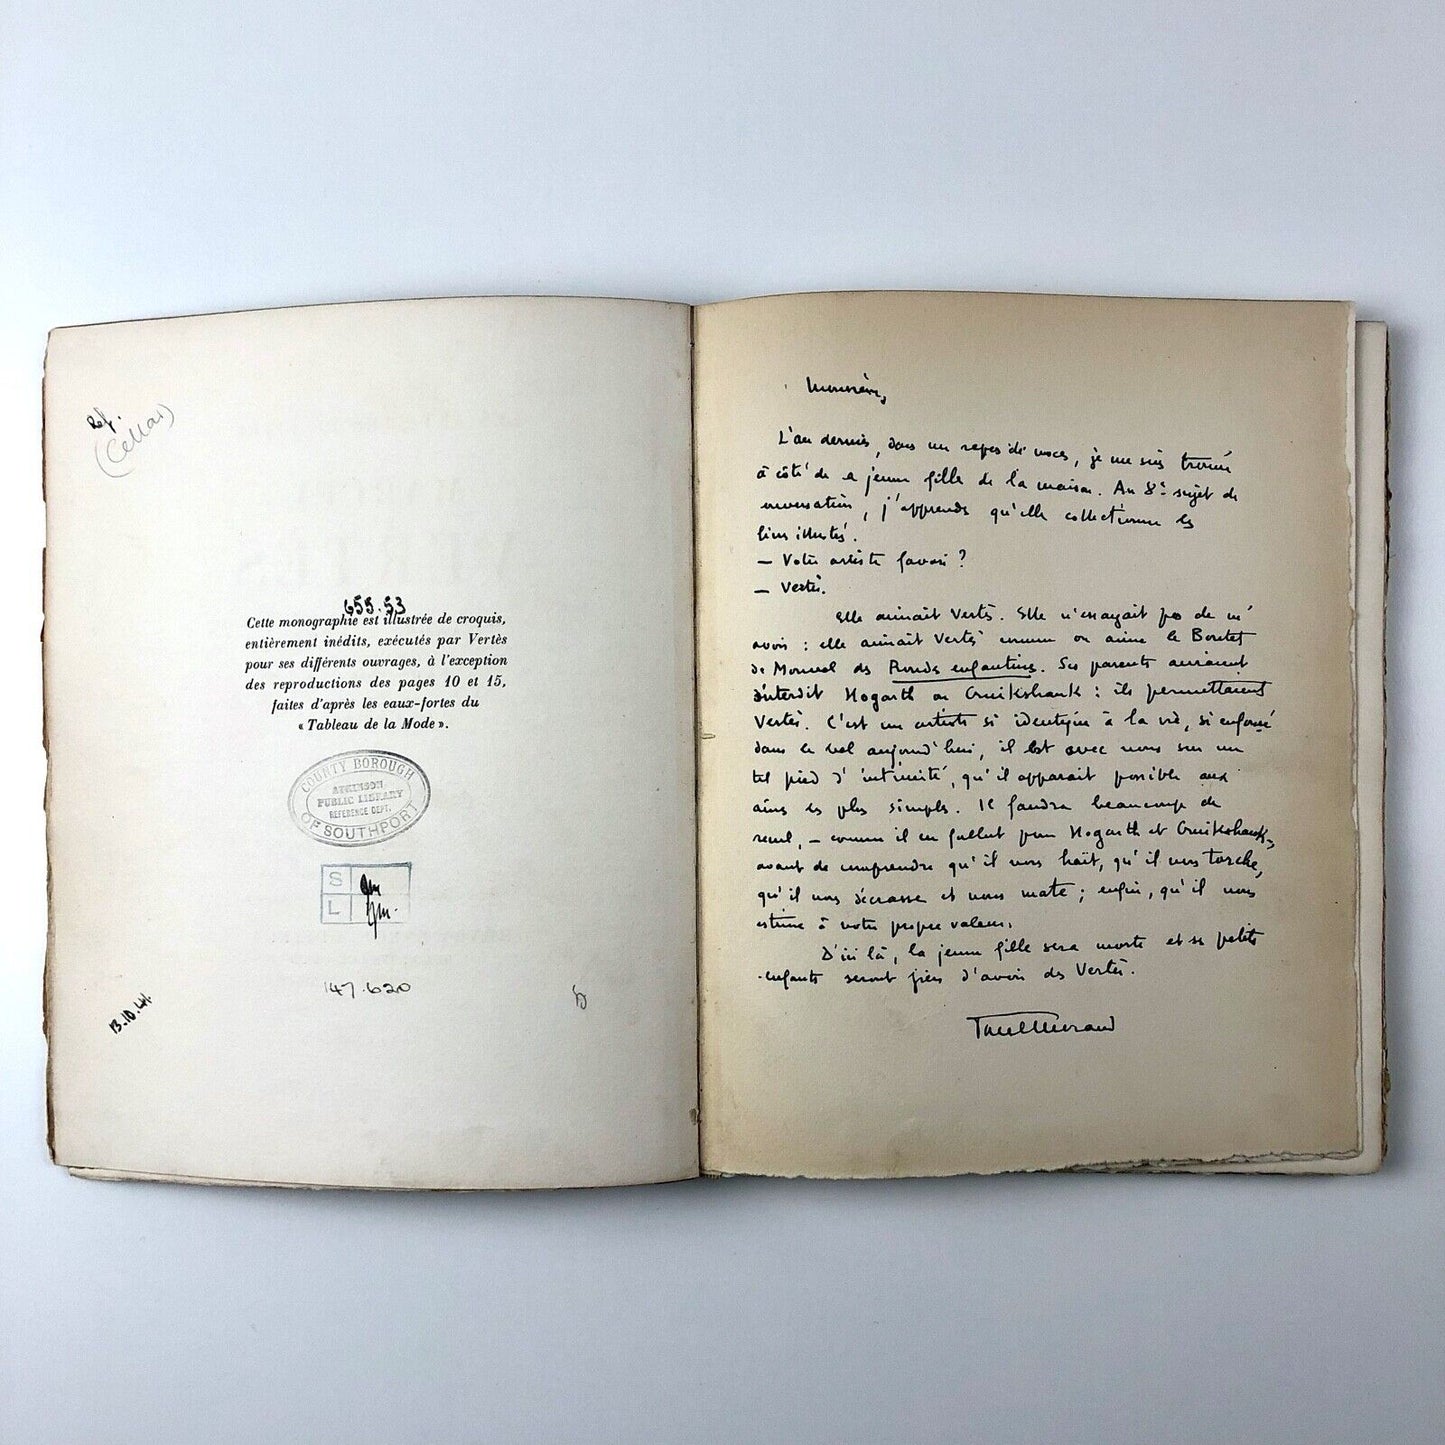 Ref.
(Cellar)
655.53
Cette monographie est illustrée de croquis,
entièrement inédits, exécutés par Vertès
pour ses différents ouvrages, à l'exception
des reproductions des pages 10 et 15,
faites d'après les eaux-fortes du
« Tableau de la Mode ».
COUNTY BOROUGH
ATKINSON
PUBLIC LIBRARY
REFERENCE DEPT.
OF SOUTHPORT
S
L
147.620
13.10.41
L'an dernier, dans un repas de noces, je me suis trouvé
à côté de la jeune fille de la maison. Au 8e sujet de
conversation, j'apprends qu'elle collectionne les
livres illustrés.
— Votre artiste favori ?
— Vertès.
Elle aimait Vertès. Elle n'essayait pas de m'
avoir : elle aimait Vertès comme on aime le Boutet
de Monvel des Rondes enfantines. Ses parents auraient
interdit Hogarth ou Cruikshank : ils permettaient
Vertès. C'est un artiste si identique à la vie, si enfoncé
dans le bel aujourd'hui, il est avec nous sur un
tel pied d'intimité, qu'il apparait possible aux
âmes les plus simples. Il faudra beaucoup de
recul, — comme il en fallut pour Hogarth et Cruikshank,
avant de comprendre qu'il nous hait, qu'il nous torche,
qu'il nous décrasse et nous mate ; enfin, qu'il nous
estime à notre propre valeur.
D'ici là, la jeune fille sera morte et ses petits
enfants seront fiers d'avoir des Vertès.
Paul Morand